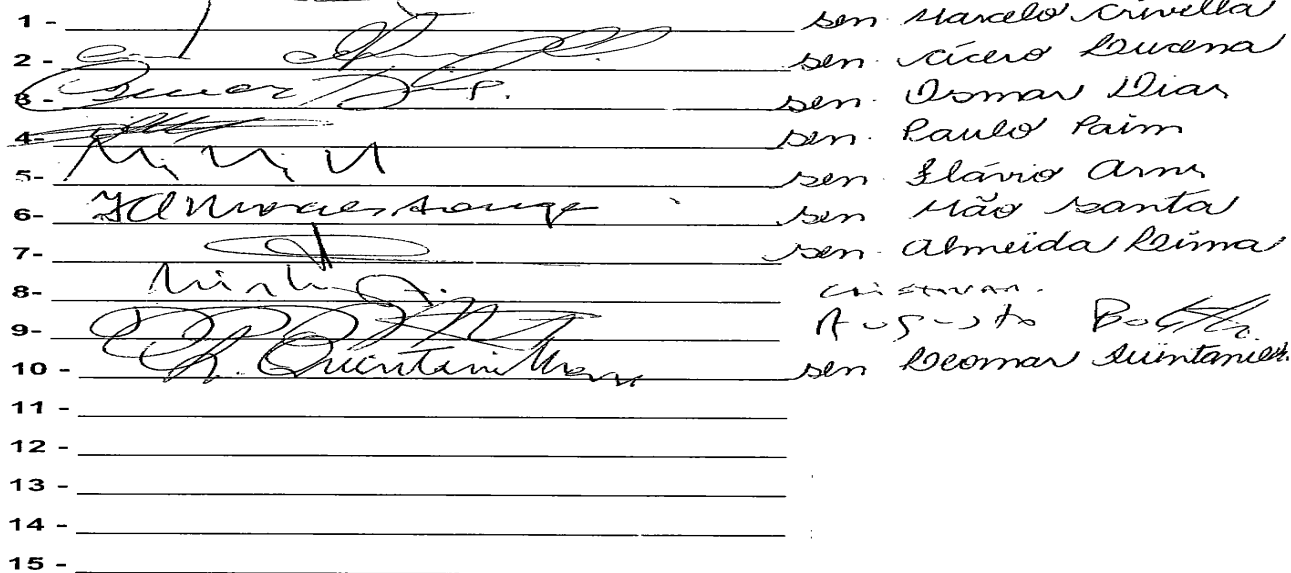 1 - sen. Marcelo Crivella
2 - sen. Cícero Lucena
3 - Osmar Dias sen. Osmar Dias
4- sen. Paulo Paim
5- sen. Flávio Arns
6- sen. Mão Santa
7- sen. Almeida Lima
8- Cristovam.
9- Augusto Botelho
10 - L. Quintanilha sen. Leomar Quintanilha
11 -
12 -
13 -
14 -
15 -